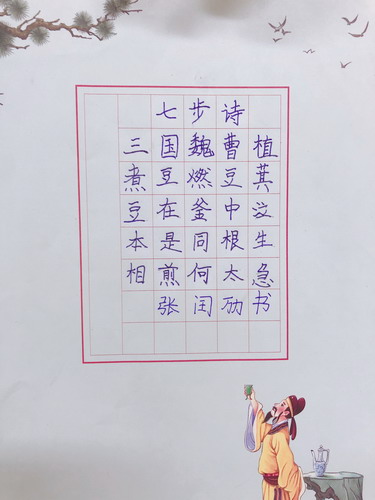 七步诗
三国魏曹植
煮豆燃豆萁
豆在釜中泣
本是同根生
相煎何太急
张闰劢书